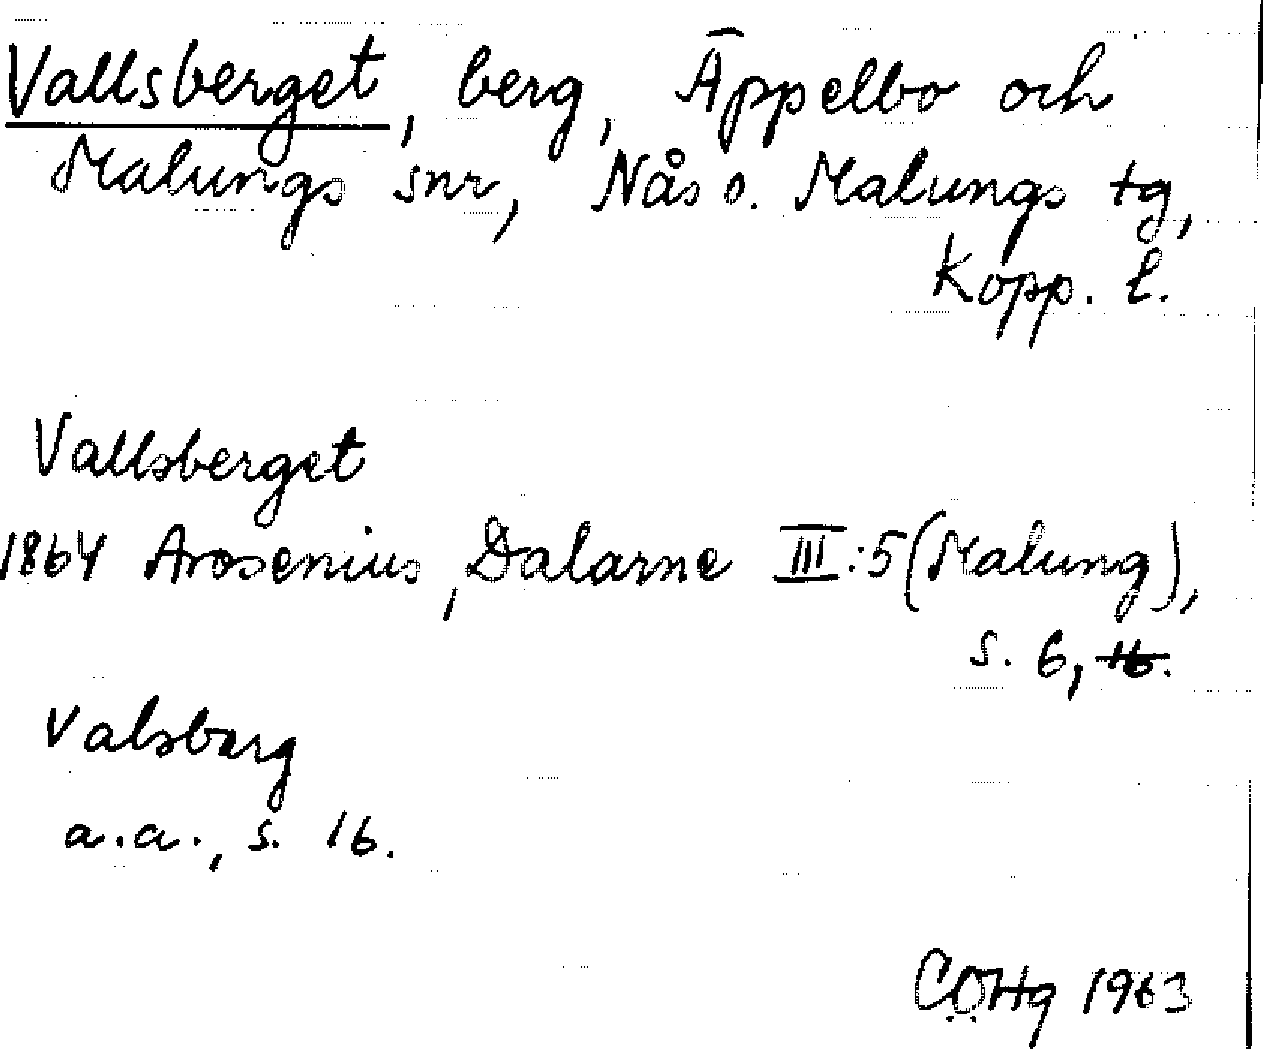 Vallsberget, berg, Äppelbo och
Malungs snr, Nås o. Malungs tg,
Kopp. l.
Vallsberget
1864 Arosenius, Dalarne III:5 (Malung),
s. 6, 16.
Valsberg
a.a., s. 16.
CÖHg 1963